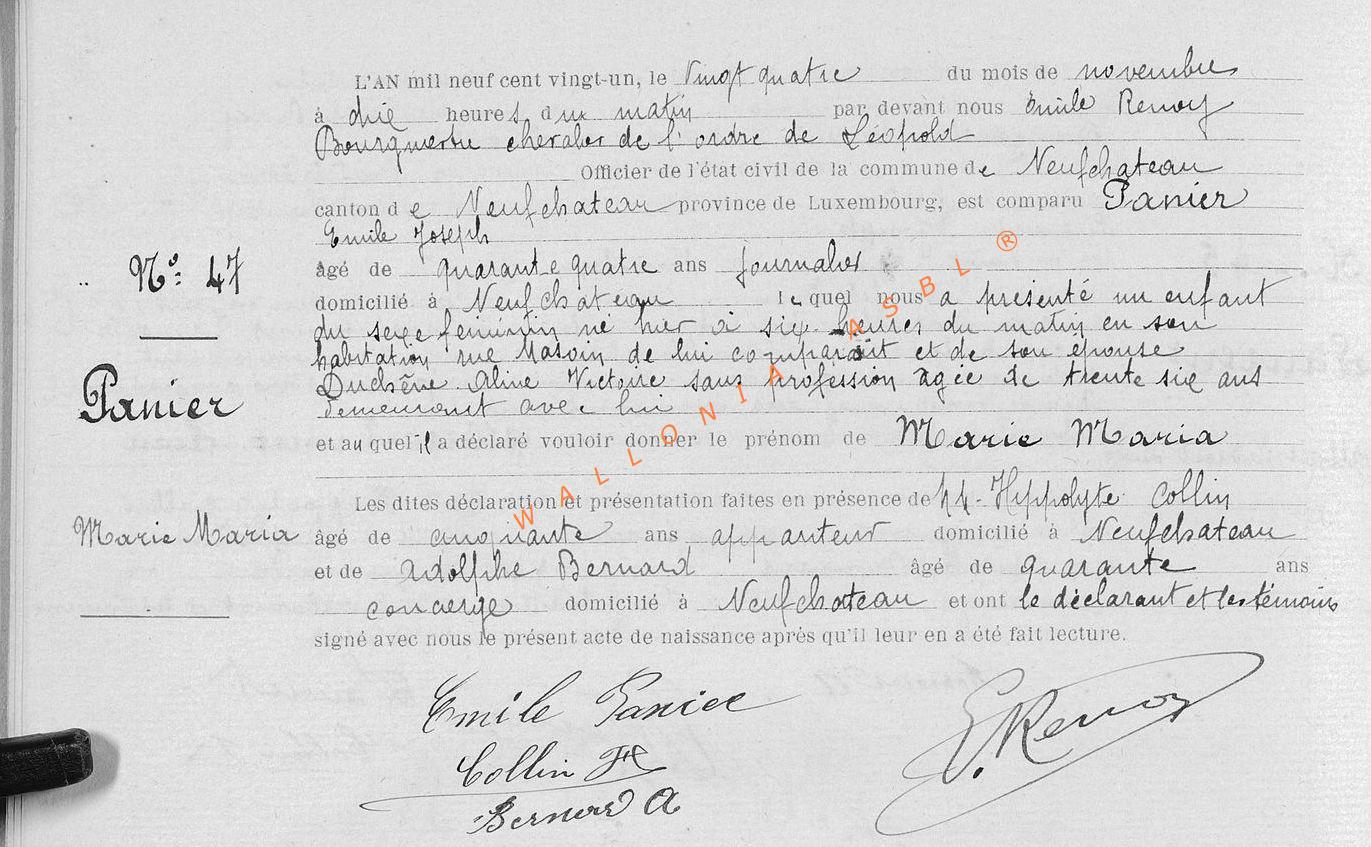 L'AN mil neuf cent vingt-un, le Vingt quatre du mois de novembre
à dix heures du matin par devant nous Emile Renoy
Bourgmestre chevalier de l'ordre de Léopold
Officier de l'état civil de la commune de Neufchateau
canton de Neufchateau province de Luxembourg, est comparu Panier
Emile Joseph
N° 47
âgé de quarante quatre ans Journalier
domicilié à Neufchateau lequel nous a présenté un enfant
du sexe feminin né hier à six heures du matin en son
habitation rue Masvin de lui comparait et de son épouse
Panier
Duchêne Aline Victoire sans profession agée de trente six ans
demeurant avec lui
et auquel il a déclaré vouloir donner le prénom de Marie Maria
Les dites déclaration et présentation faites en présence de Hippolyte Collin
Marie Maria
âgé de cinquante ans appariteur domicilié à Neufchateau
et de Adolphe Bernard âgé de quarante ans
concierge domicilié à Neufchateau et ont le déclarant et les témoins
signé avec nous le présent acte de naissance après qu'il leur en a été fait lecture.
Emile Panier
E. Renoy
Collin H
Bernard A
WALLONIA ASBL ®